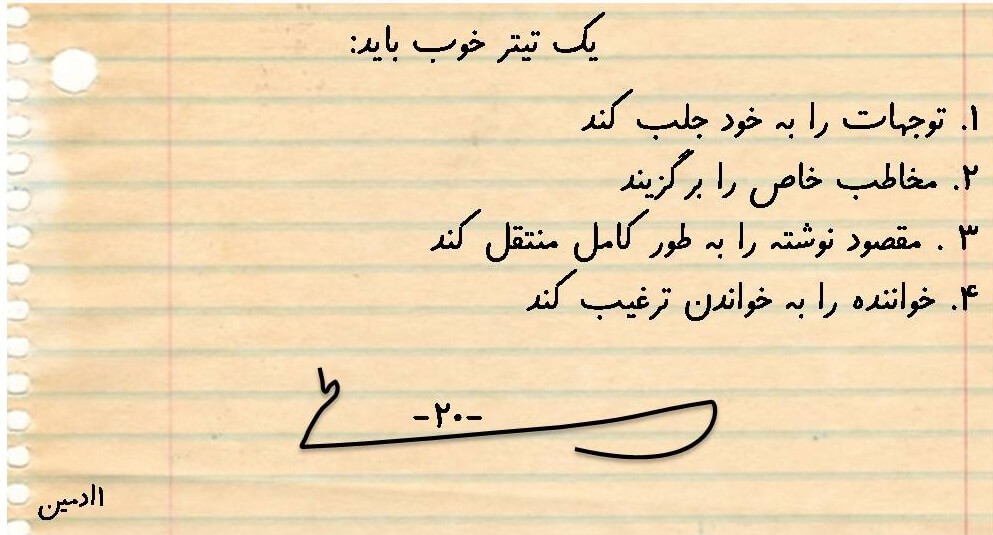 یک تیتر خوب باید:
۱. توجهات را به خود جلب کند
۲. مخاطب خاص را برگزیند
۳ . مقصود نوشته را به طور کامل منتقل کند
۴. خواننده را به خواندن ترغیب کند
-۲۰-
۱ادمین